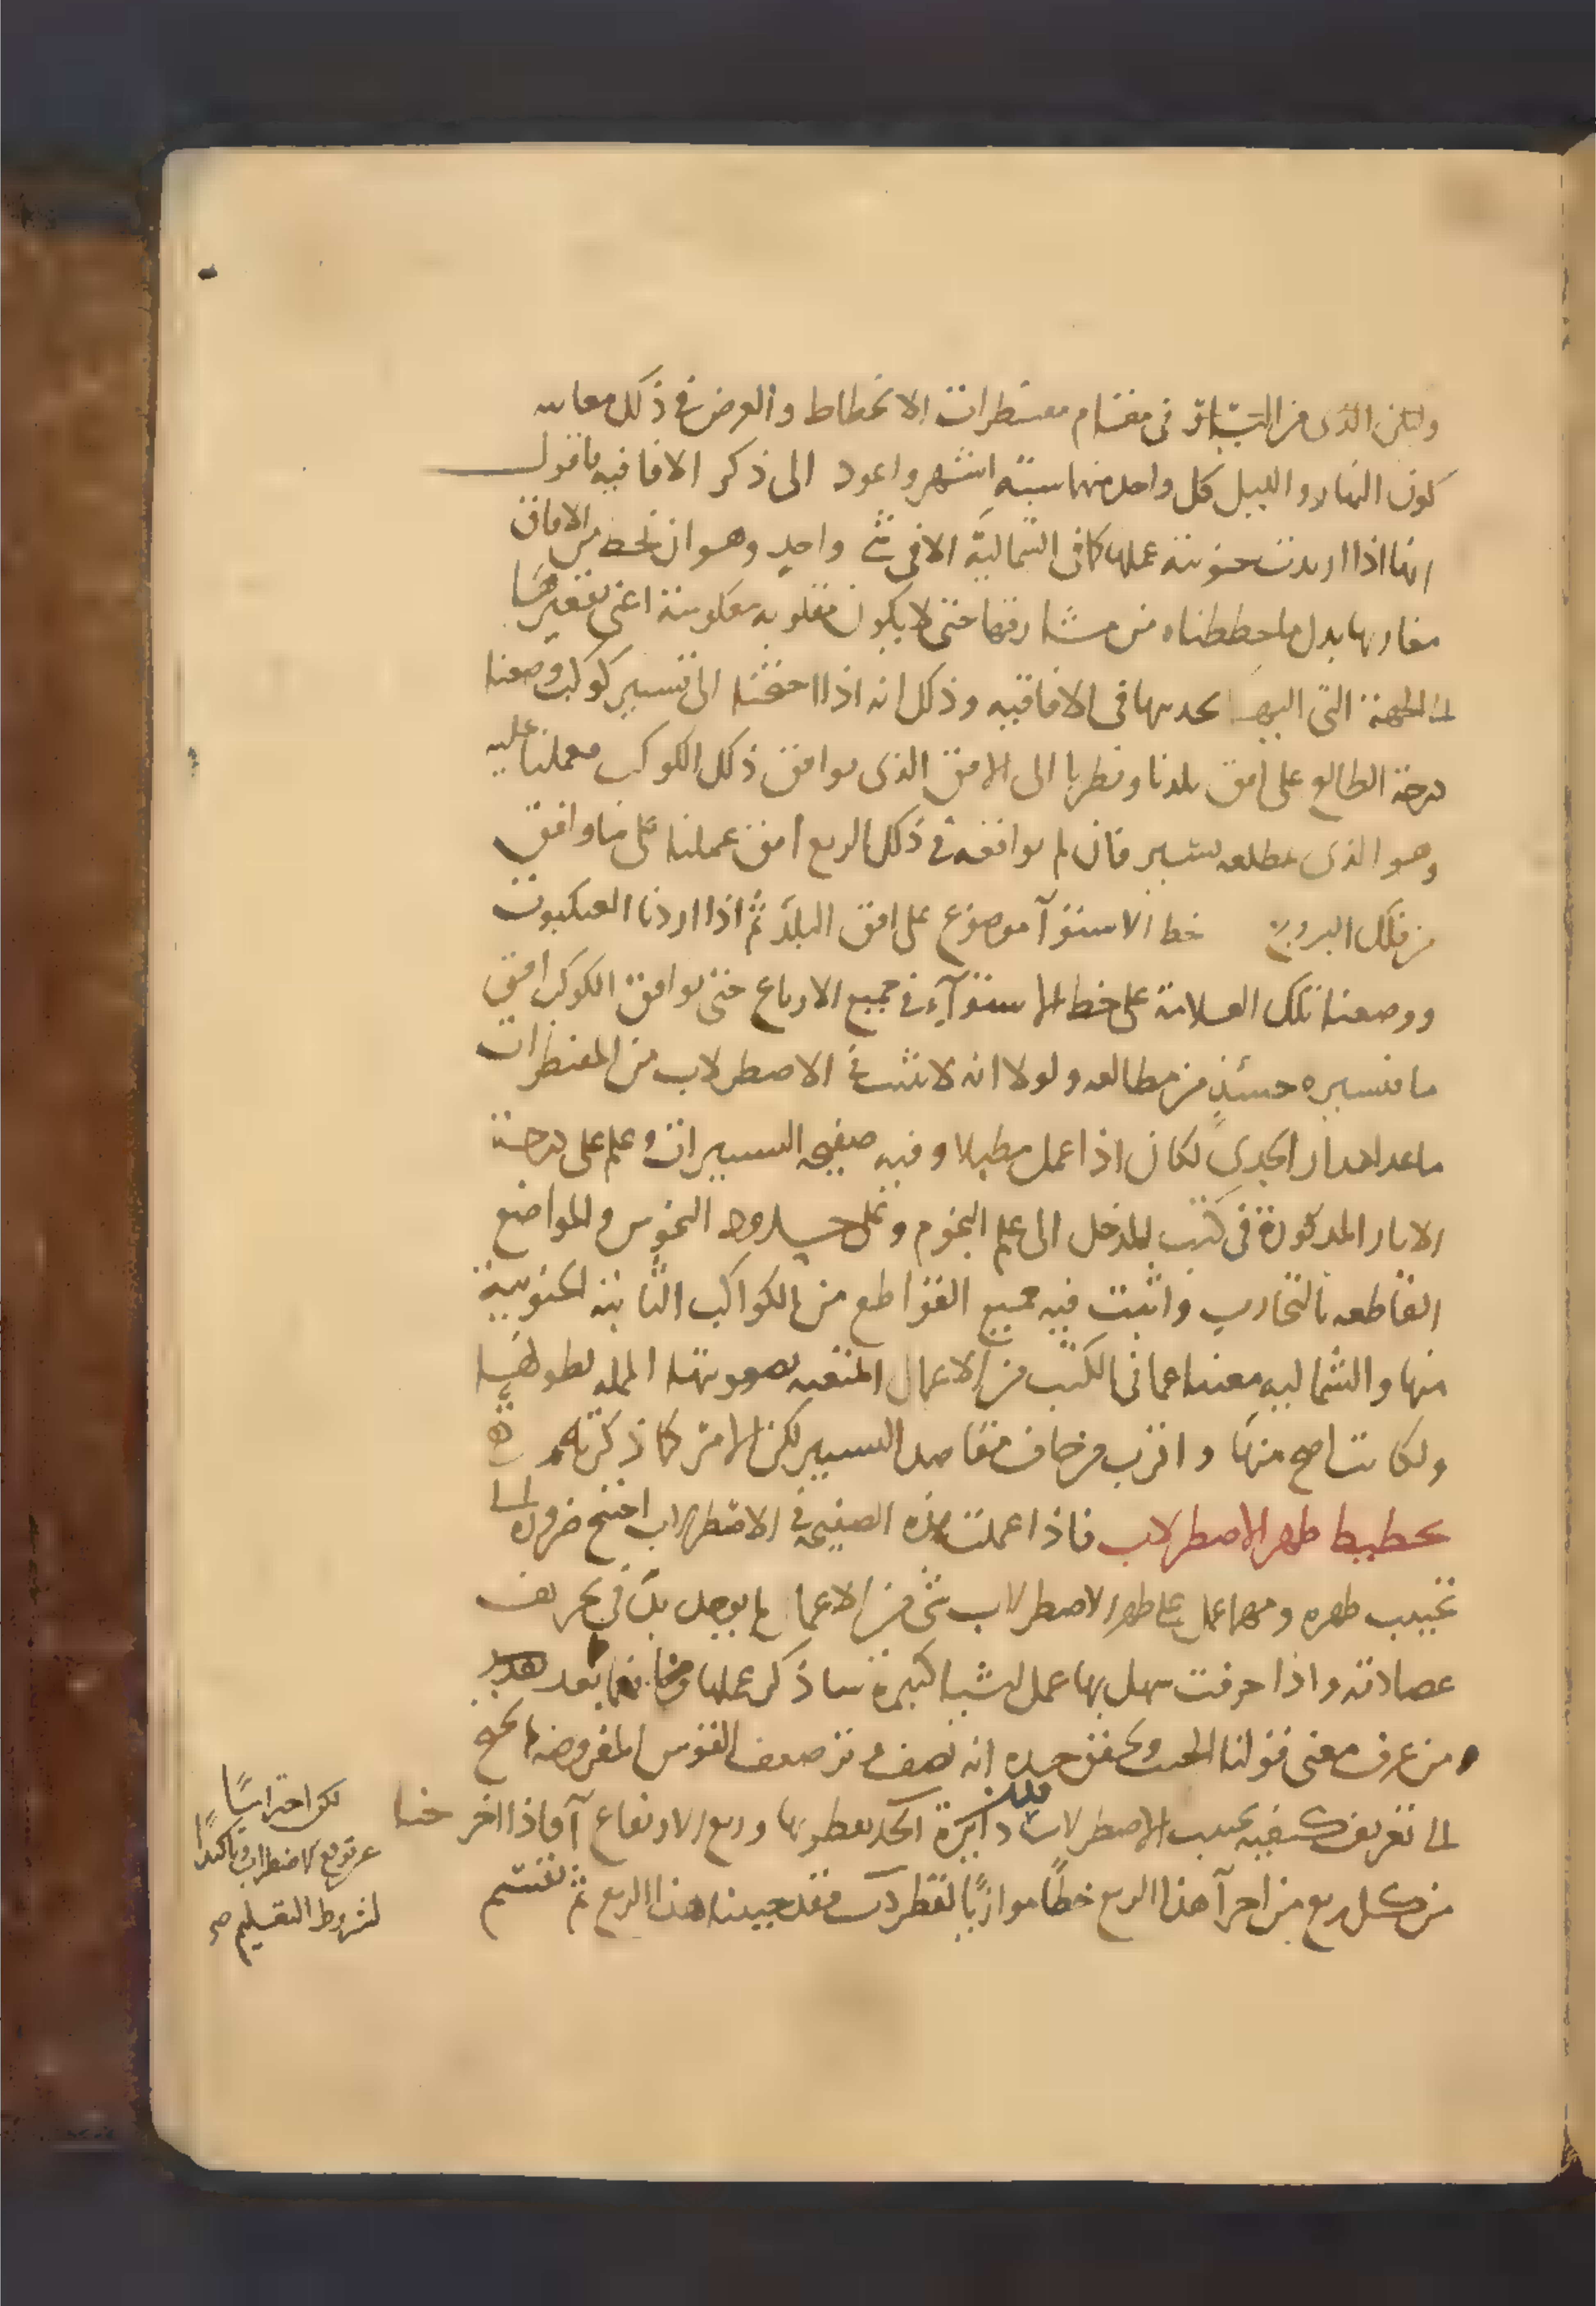 ولكن الذى من التباتر فى مقام مقنطرات الانحطاط والعرض فى ذلك معا
كون النهار والليل كل واحد منهما ستة اشهر واعود الى ذكر الافاقيه فاقول
انها اذا اريدت جنوبية عملها كما فى الشمالية الا فى شئ واحد وهو ان نخط من الافاق
مغاربها بدل ما خططناه من مشارقها حتى لا يكون مقلوبه معكوسة اعنى تقعيرها
الى الجهة التى اليها تحديبها فى الافاقيه وذلك انه اذا احتجنا الى تسيير كوكب وضعنا
درجة الطالع على افق بلدنا ونظرنا الى الافق الذى يوافق ذلك الكوكب فعملنا عليه
وهو الذى بمطلعه نسير فان لم يوافقه فى ذلك الربع افق عملنا على ما وافق
من فلك البروج خط الاستوآ موضوع على افق البلد ثم اذا ادرنا العنكبوت
ووضعنا تلك العلامة على خط الاستوآء فى جميع الارباع حتى يوافق الكوكب افق
ما فتسييره حينئذ من مطالعه ولولا انه لا يثبت فى الاصطرلاب من المقنطرات
ما عدا مدار الجدى لكان اذا عمل مطبلا وفيه صفيحه التسييرات وعلم على درجة
الابار المذكورة فى كتب المدخل الى علم النجوم وعلى حدود النحوس والمواضع
القاطعه بالتجارب واثبت فيه جميع القواطع من الكواكب الثابته الجنوبية
منها والشماليه مغنيا عما فى الكتب من الاعمال المتعبه بصعوبتها الممله بطولها
ولكانت اصح منها واقرب من مقاصد التسيير لكن الامر كما ذكرته ه
تخطيط ظهر الاصطرلاب فاذا عملت هذه الصفيحه فى الاصطرلاب احتيج ضرورة الى
تجييب ظهره ومهما عمل على ظهر الاصطرلاب شئ من الاعمال لم يوجد بد فى تحريف
عضادته واذا حرفت سهل بها عمل اشيا كثيرة ساذكر عملها فيما بعد
من عرف معنى قولنا الجيب وتحقق حده انه نصف وتر ضعف القوس المفروضه لم يحتج
الى تعريف كيفيه تجييب الاصطرلاب فليكن دايرة ا ب ج د بقطريها وربع الارتفاع آ فاذا اخرجنا
من كل ربع من اجزآ هذا الربع خطا موازيا لقطر فقد جيبنا هذا الربع ثم نقسم
لكن احتراسا
عن توقع الاضطراب وتاكيدا
لشروط التعليم صح